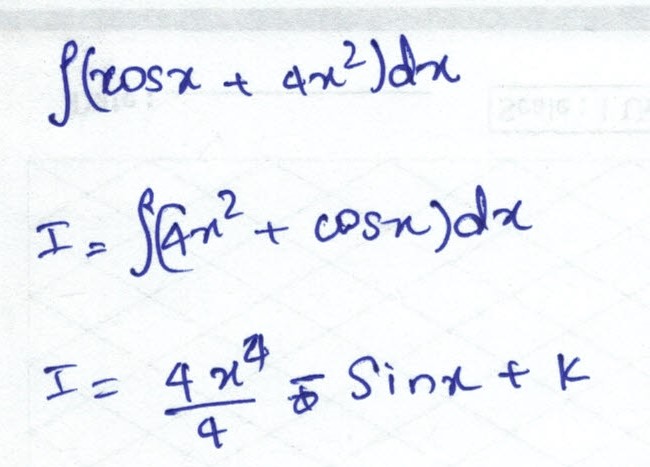 ∫(cosx + 4x²)dx
I = ∫(4x² + cosx)dx
I = 4x⁴/4 - Sinx + K